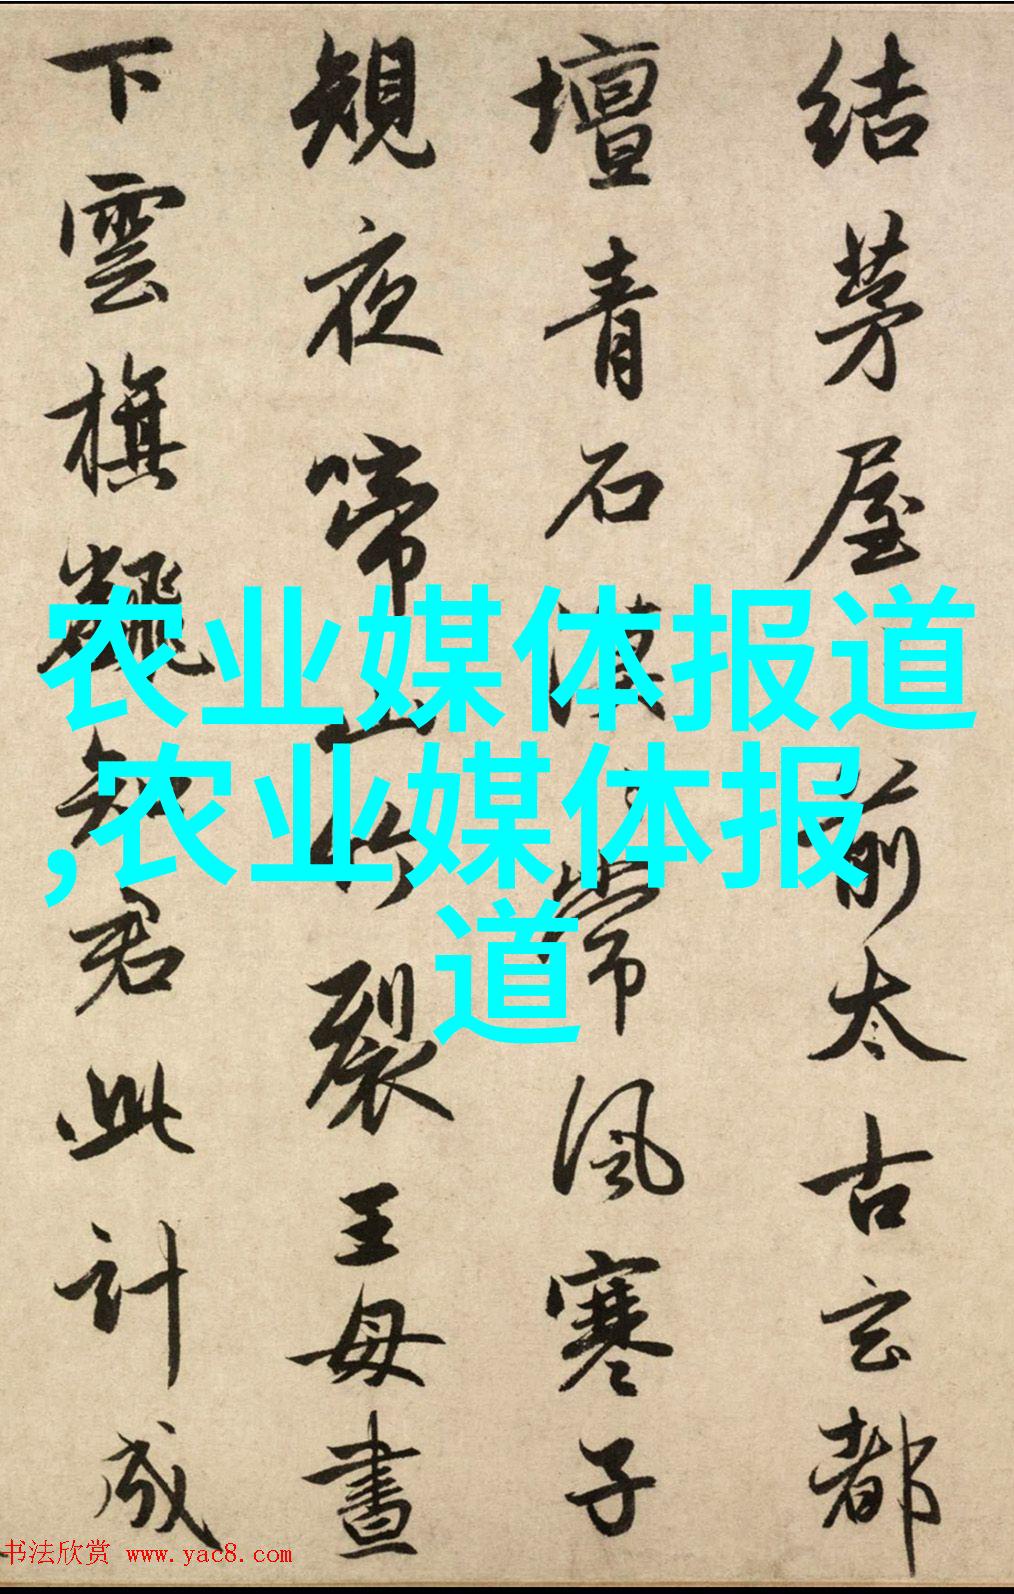 结茅屋前太古玄都
壇青石漠常風寒子
規夜啼山竹裂王母晝
下雲旗飜知君此計成
农业媒体报道
,农业媒体报
道
书法欣赏 www.yac8.com